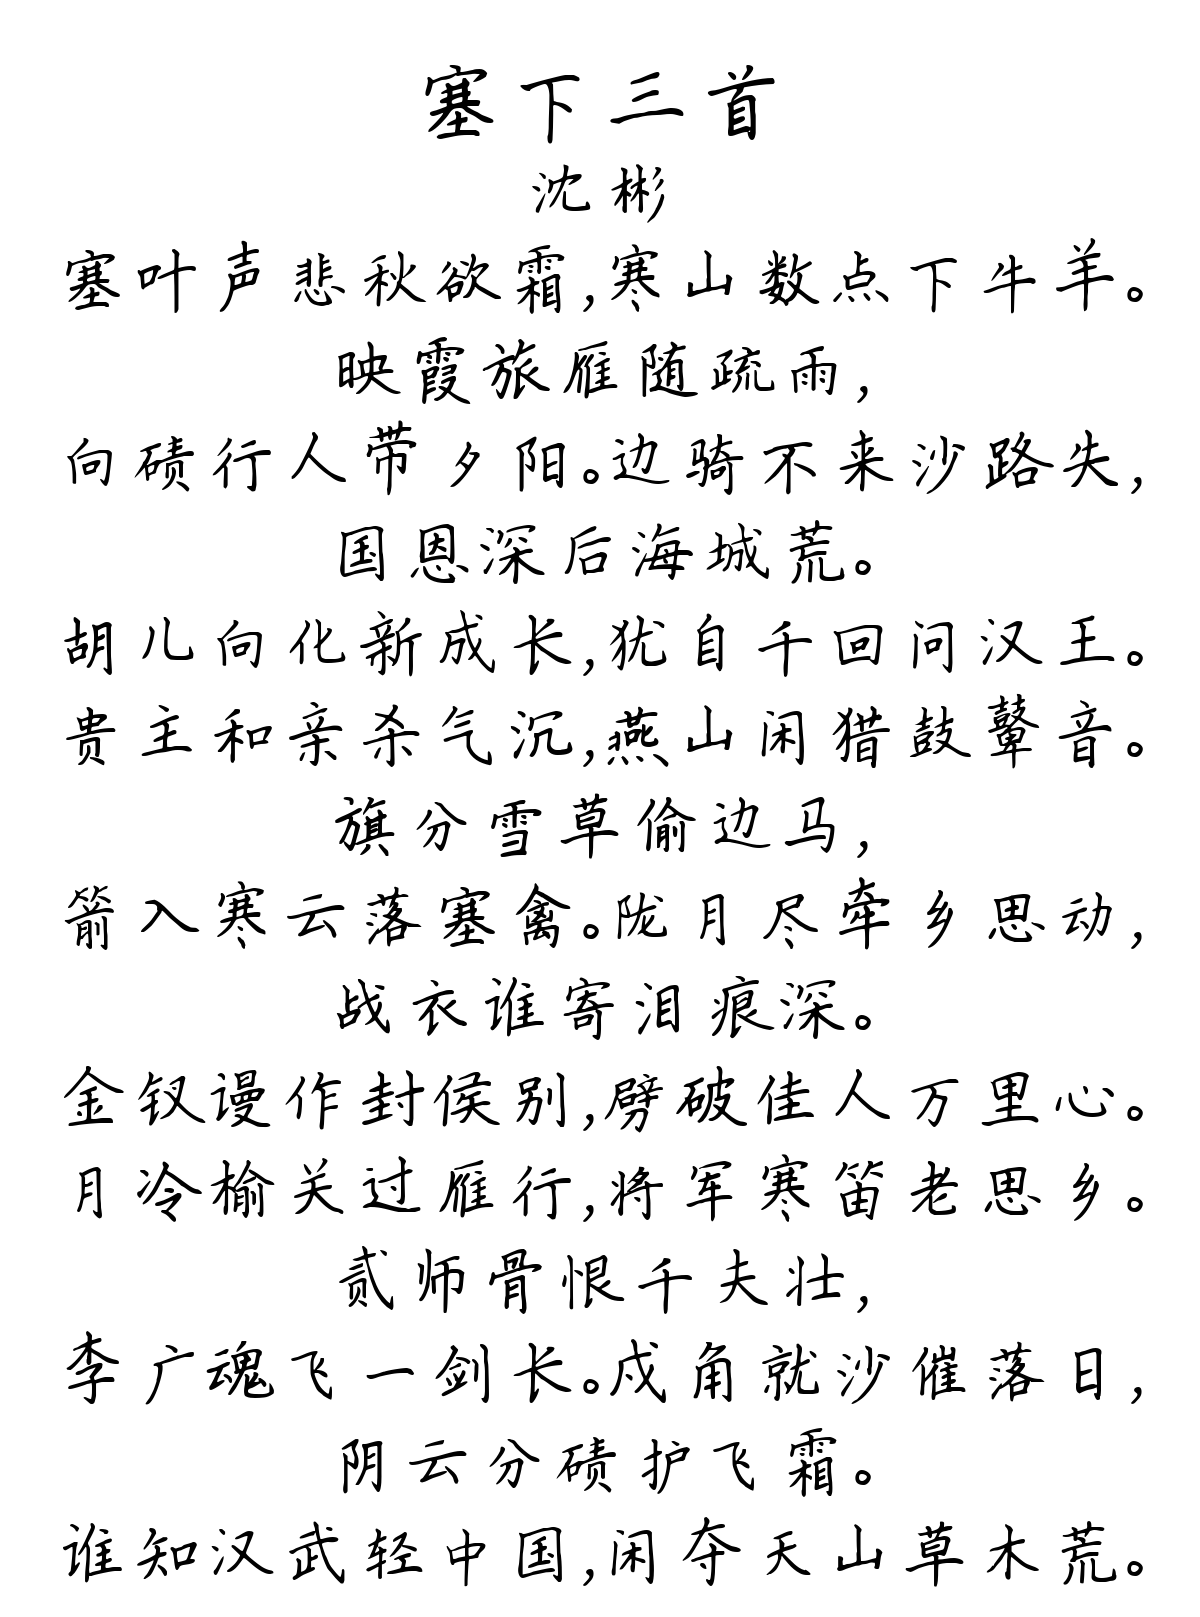 塞下三首
沈彬
塞叶声悲秋欲霜,寒山数点下牛羊。
映霞旅雁随疏雨,
向碛行人带夕阳。边骑不来沙路失,
国恩深后海城荒。
胡儿向化新成长,犹自千回问汉王。
贵主和亲杀气沉,燕山闲猎鼓鼙音。
旗分雪草偷边马,
箭入寒云落塞禽。陇月尽牵乡思动,
战衣谁寄泪痕深。
金钗谩作封侯别,劈破佳人万里心。
月冷榆关过雁行,将军寒笛老思乡。
贰师骨恨千夫壮,
李广魂飞一剑长。戍角就沙催落日,
阴云分碛护飞霜。
谁知汉武轻中国,闲夺天山草木荒。